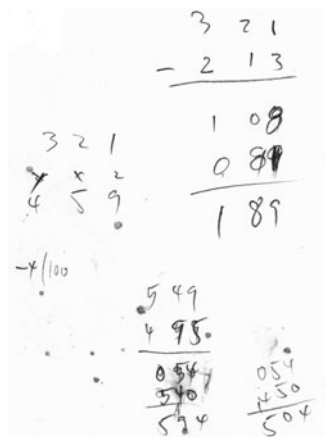 3 2 1
- 2 1 3
1 0 8
1 8 9
3 2 1
x x 2
4 5 9
5 4 9
4 9 5
0 5 4
5 4 0
5 9 4
0 5 4
4 5 0
5 0 4